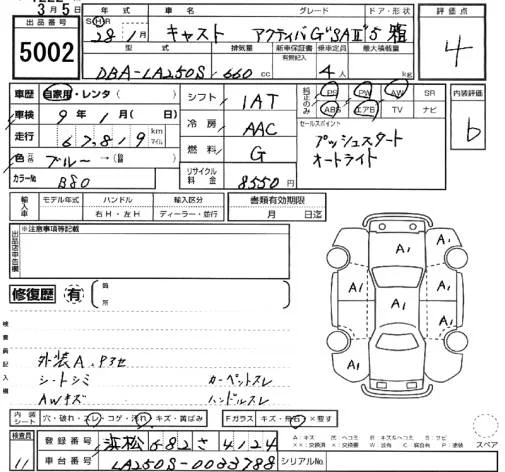 3月5日
出品番号 5002
年式 車名 グレード ドア・形状 評価点
SⒽR 28年1月 キャスト アクティバG"SAⅡ" 5 箱 4
型式 排気量 新車保証書 乗車定員 最大積載量
有無記入
DBA-LA250S 660cc 4人 kg
車歴 自家用・レンタ( )
車検 9年1月( 日)
走行 67,819 km マイル
色 ブルー →( )
カラーNo B80
シフト IAT
冷房 AAC
燃料 G
リサイクル料金 8550円
純正のみ PS PW AW SR
ABS エアB TV ナビ
内装評価 b
セールスポイント
プッシュスタート
オートライト
輸入車 モデル年式 ハンドル 輸入区分 書類有効期限
右H・左H ディーラー・並行 月 日迄
出品店申告欄 ※注意事項等記載
修復歴 有 箇所
検査員記入欄
外装A.クスセ
シートシミ カーペットスレ
AWキズ ハンドルスレ
A1 A1
A1 A1 A1
A1
スペア
内装シート 穴・破れ・スレ・コゲ・汚れ・キズ・黄ばみ Fガラス キズ・飛石・×要す
検査員 11
登録番号 浜松 682 さ 4124
車台番号 LA250S-0033788 シリアルNo.